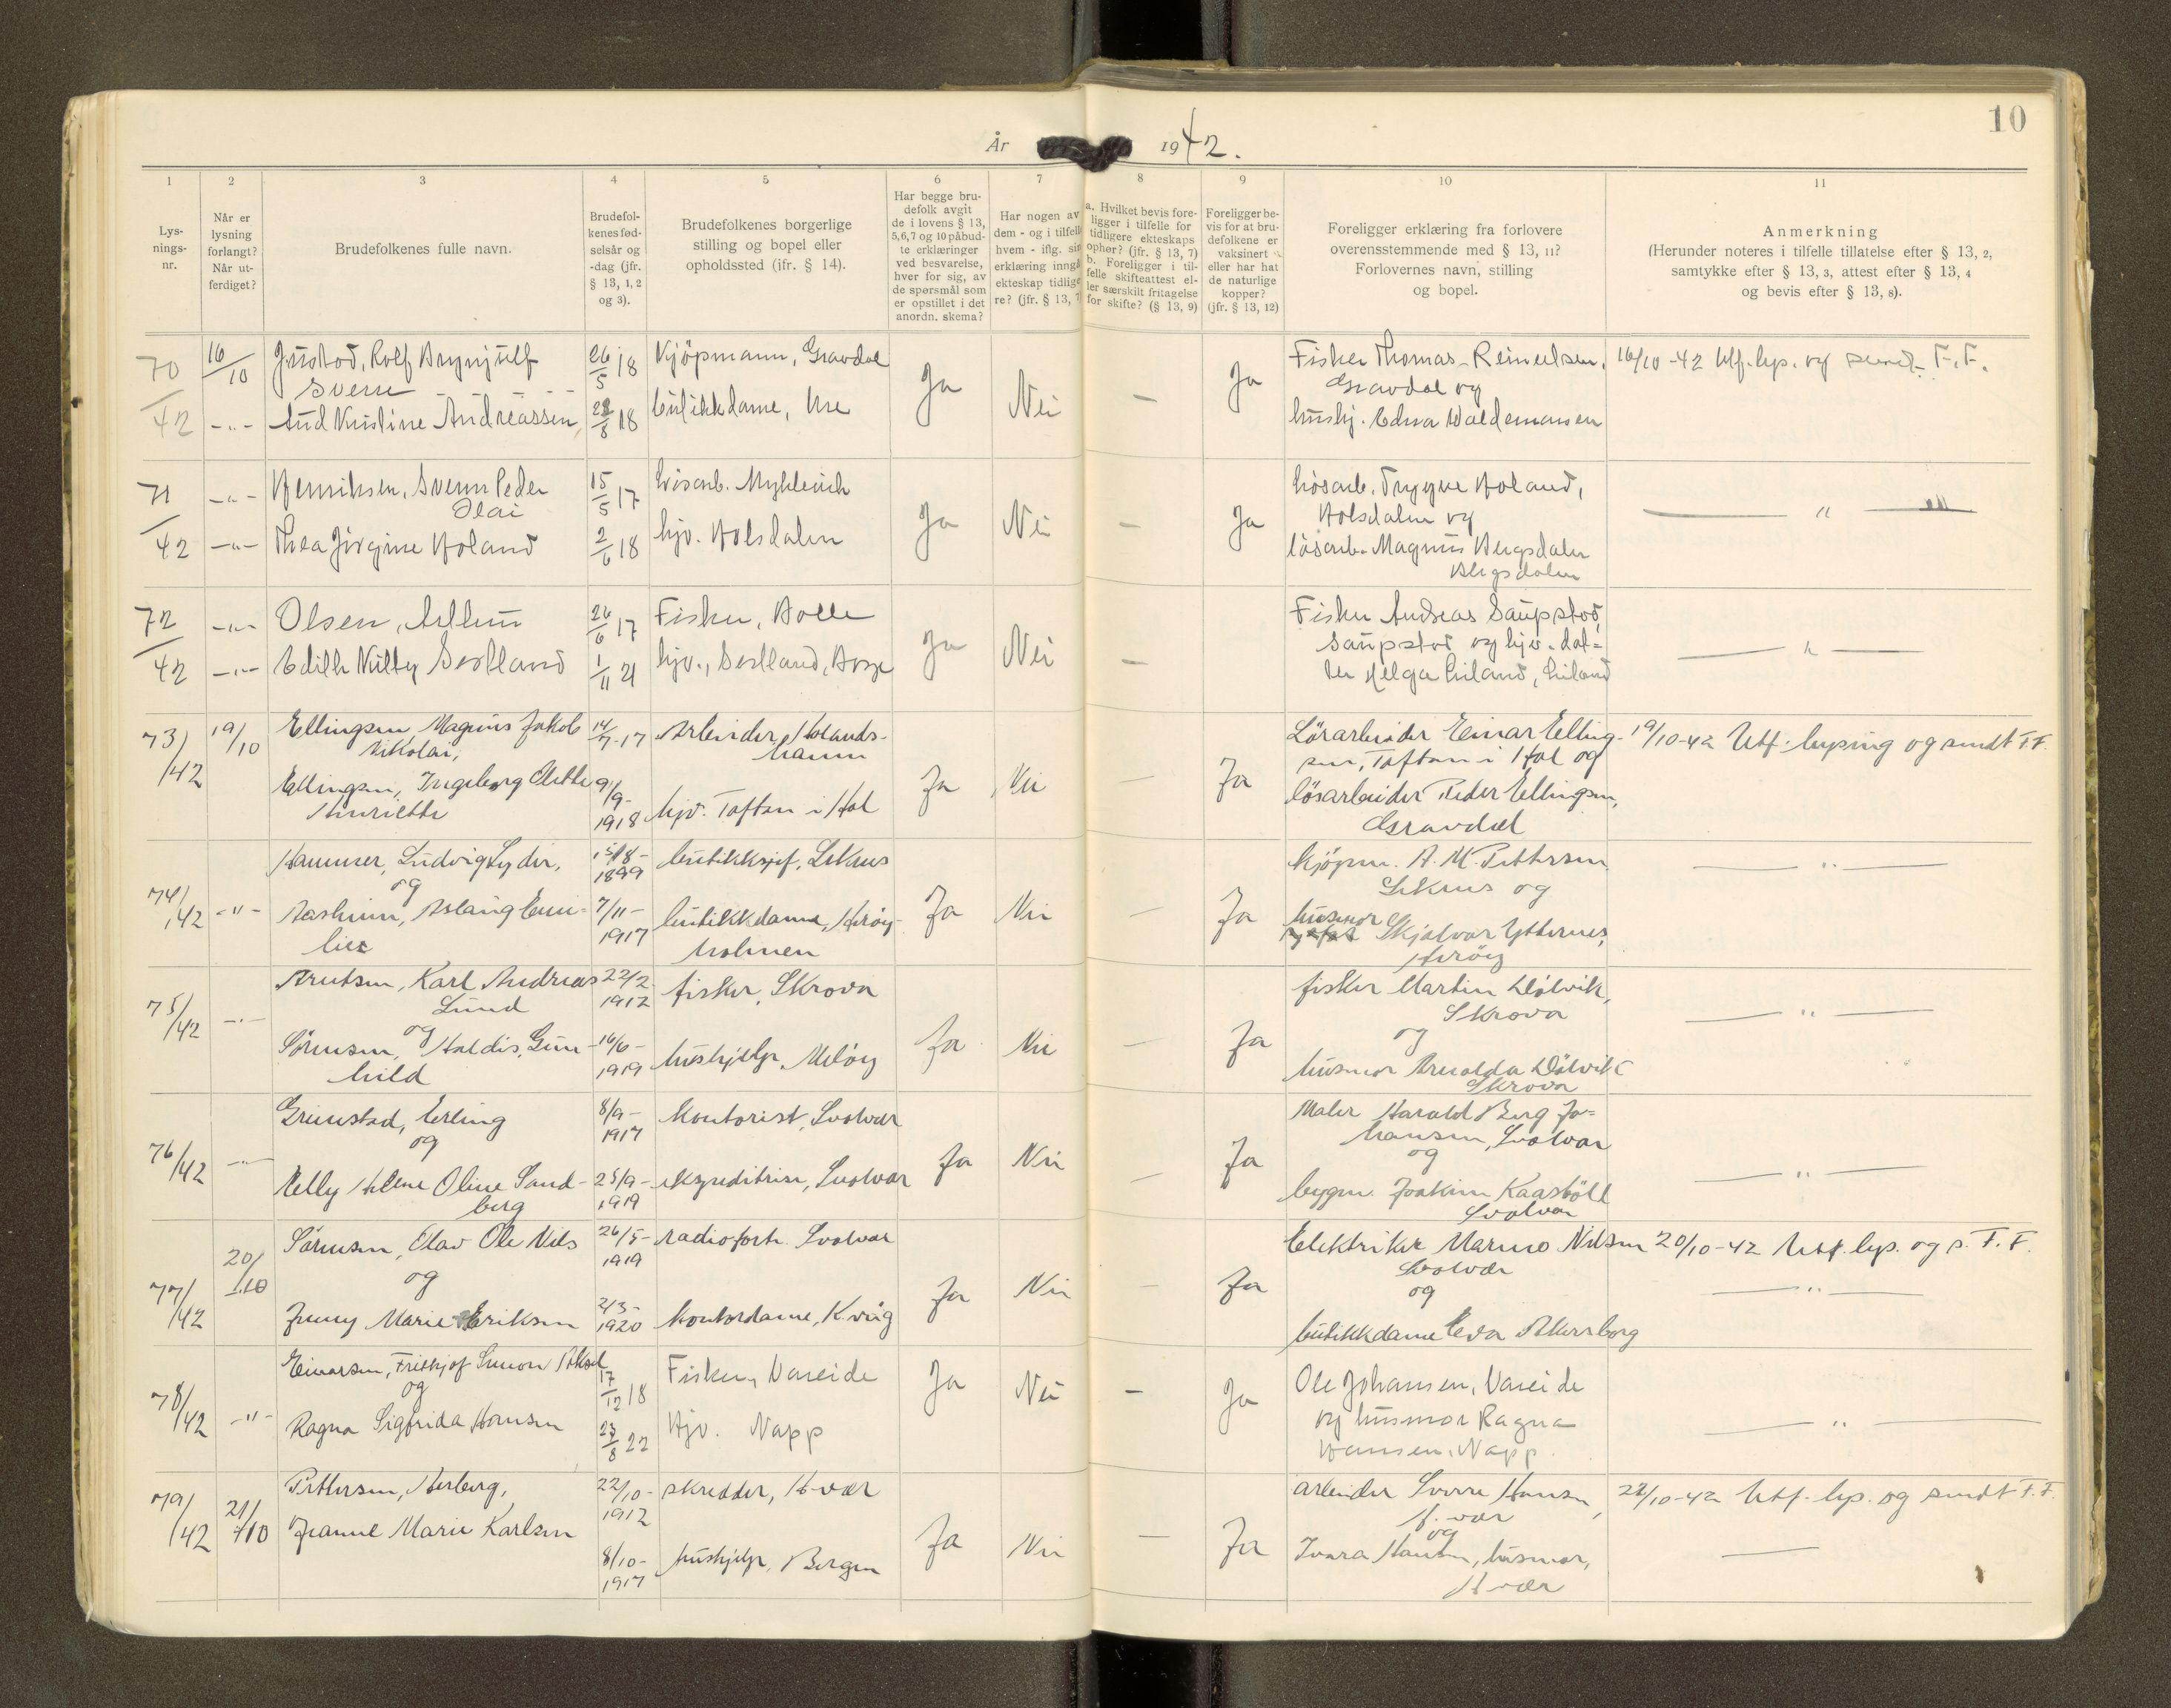 10
År 1942.
1 2 3 4 5 6 7 8 9 10 11
Lys-
nings-
nr.
Når er
lysning
forlangt?
Når ut-
ferdiget?
Brudefolkenes fulle navn.
Brudefol-
kenes fød-
selsår og
-dag (jfr.
§ 13, 1, 2
og 3).
Brudefolkenes borgerlige
stilling og bopel eller
opholdssted (jfr. § 14).
Har begge bru-
defolk avgit
de i lovens § 13,
5,6,7 og 10 påbud-
te erklæringer
ved besvarelse,
hver for sig, av
de spørsmål som
er opstillet i det
anordn. skema?
Har nogen av
dem - og i tilfelle
hvem - iflg. sin
erklæring inngå
ekteskap tidlige
re? (jfr. § 13, 7
a. Hvilket bevis fore-
ligger i tilfelle for
tidligere ekteskaps
ophør? (jfr. § 13, 7)
b. Foreligger i til-
felle skifteattest el-
ler særskilt fritagelse
for skifte? (§ 13, 9)
Foreligger be-
vis for at bru-
defolkene er
vaksinert
eller har hat
de naturlige
kopper?
(jfr. § 13, 12)
Foreligger erklæring fra forlovere
overensstemmende med § 13, 11?
Forlovernes navn, stilling
og bopel.
Anmerkning
(Herunder noteres i tilfelle tillatelse efter § 13, 2,
samtykke efter § 13, 3, attest efter § 13, 4
og bevis efter § 13, 8).
70/42 16/10 Rolf Brynjulf 26/5 18 Kjöpmann, Gravdal Ja Nei — Ja Fisker Thomas 16/10-42 Utf. lys. og sendt F.F.
Sverre Gravdal og
-"- Aud Kristine Andreassen, 8 18 butikkdame, Ure hushj. Edna Waldemarsen
71/42 -"- Henriksen, Svenn Peder 15/5 17 lösarb. Myklevik Ja Nei — Ja lösarb. Trygve Holand, — " —
Olai Holsdalen og
-"- Thea Jörgine Holand 2/6 18 hjv. Holsdalen lösarb. Magnus Bergsdalen
Bergsdalen
72/42 -"- Olsen, Arthur 26/6 17 Fisker, Holle Ja Nei — Fisker Andreas Saupstod, — " —
Saupstod og hjv. dat-
-"- Edith Nilly 1/11 21 hjv., Borge ter Helga Liland, Liland
73/42 19/10 Ellingsen, Magnus Jakob 14/7-17 Arbeider, Holands- Ja Nei — Ja Lösarbeider Einar Elling- 19/10-42 Utf. lysing og sendt F.F.
Nikolai, havn sen, Taftan i Hol og
Ellingsen, Ingeborg 9/9- lösarbeider Peder Ellingsen,
Henriette 1918 hjv. Taftan i Hol Gravdal
74/42 -"- Hammer, Ludvig Lyder, 15/8- butikksjef, Leknes Ja Nei — Ja kjöpm. A. M. Pettersen — " —
og 1899 Leknes og
Aasheim, Aslaug Emi- 7/11- butikkdame, Kröy- husmor Skjalvor Ytternes,
lie 1917 holmen
75/42 -"- Arntsen, Karl Andreas 22/2 fisker, Skrova Ja Nei — Ja fisker Martin Dalvik, — " —
Lund 1912 Skrova
og og
Sörensen, Haldis Gun- 16/6- hushjelp, Melöy husmor Arnolda Dalvik
hild 1919 Skrova
76/42 -"- Grimstad, Erling 8/9- kontorist, Svolvær Ja Nei — Ja Maler Harald Berg Jo- — " —
og 1917 hansen, Svolvær
og
Nelly Helene Oline Sand- 25/9- ekspeditrise, Svolvær bygm. Joakim Kaasböll
berg 1919 Svolvær
77/42 20/10 Sörensen, Olav Ole Nils 26/5- radioforh. Svolvær Ja Nei — Ja Elektriker Marino Nilsen 20/10-42 Utf. lys. og s. F.F.
og 1919 Svolvær — " —
og
Jenny Marie Eriksen 2/3- kontordame, K.våg butikkdame Eva Akersborg
1920
78/42 -"- Einarsen, Fridhjof Simon Aksel 17/12 18 Fisker, Vareide Ja Nei — Ja Ole Johansen, Vareide — " —
og og husmor Ragna
Ragna Sigfrida Hansen 8 22 Hjv. Napp Hansen, Napp.
79/42 21/10 Pettersen, Herberg, 22/10- skredder, H-vær Ja Nei — Ja arbeider Sverre Hansen, 22/10-42 Utf. lys. og sendt F.F.
1912 og —
Jeanne Marie Karlsen 8/10- hushjelp, Bergen Ivara Hansen, husmor,
1917 H-vær